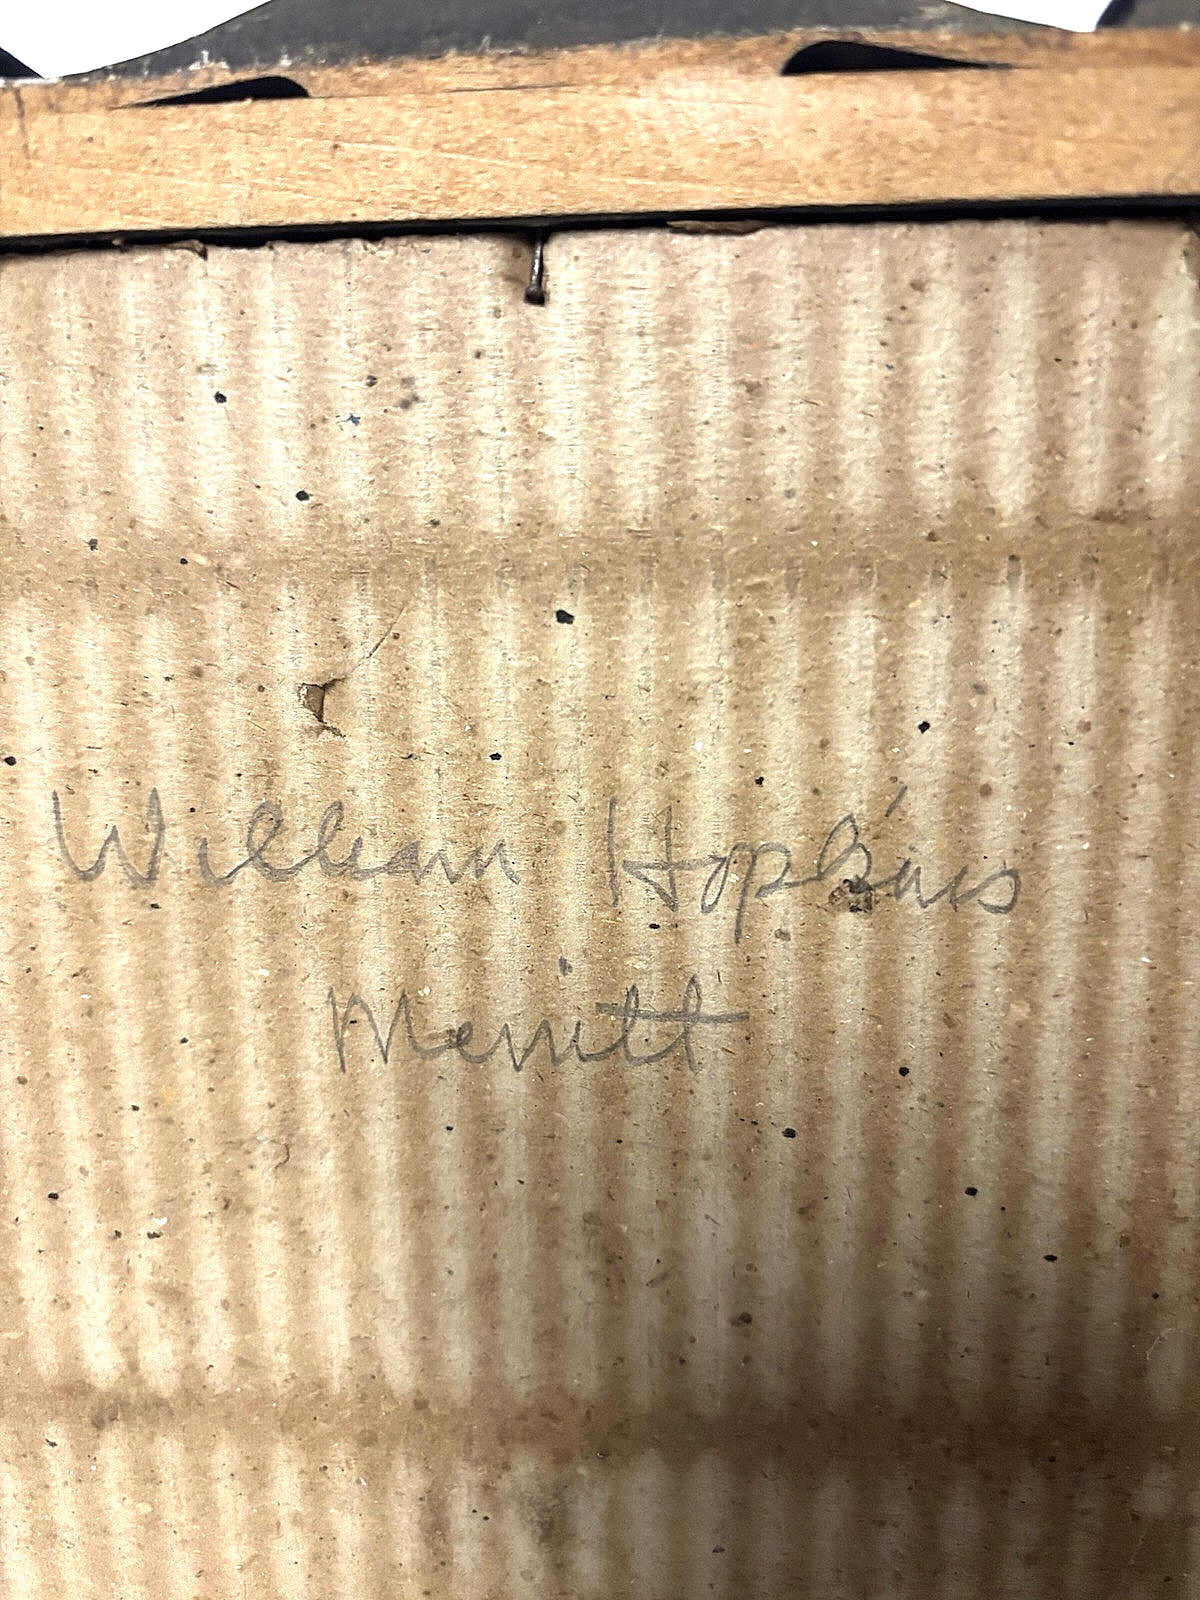 William Hopkins
Merritt